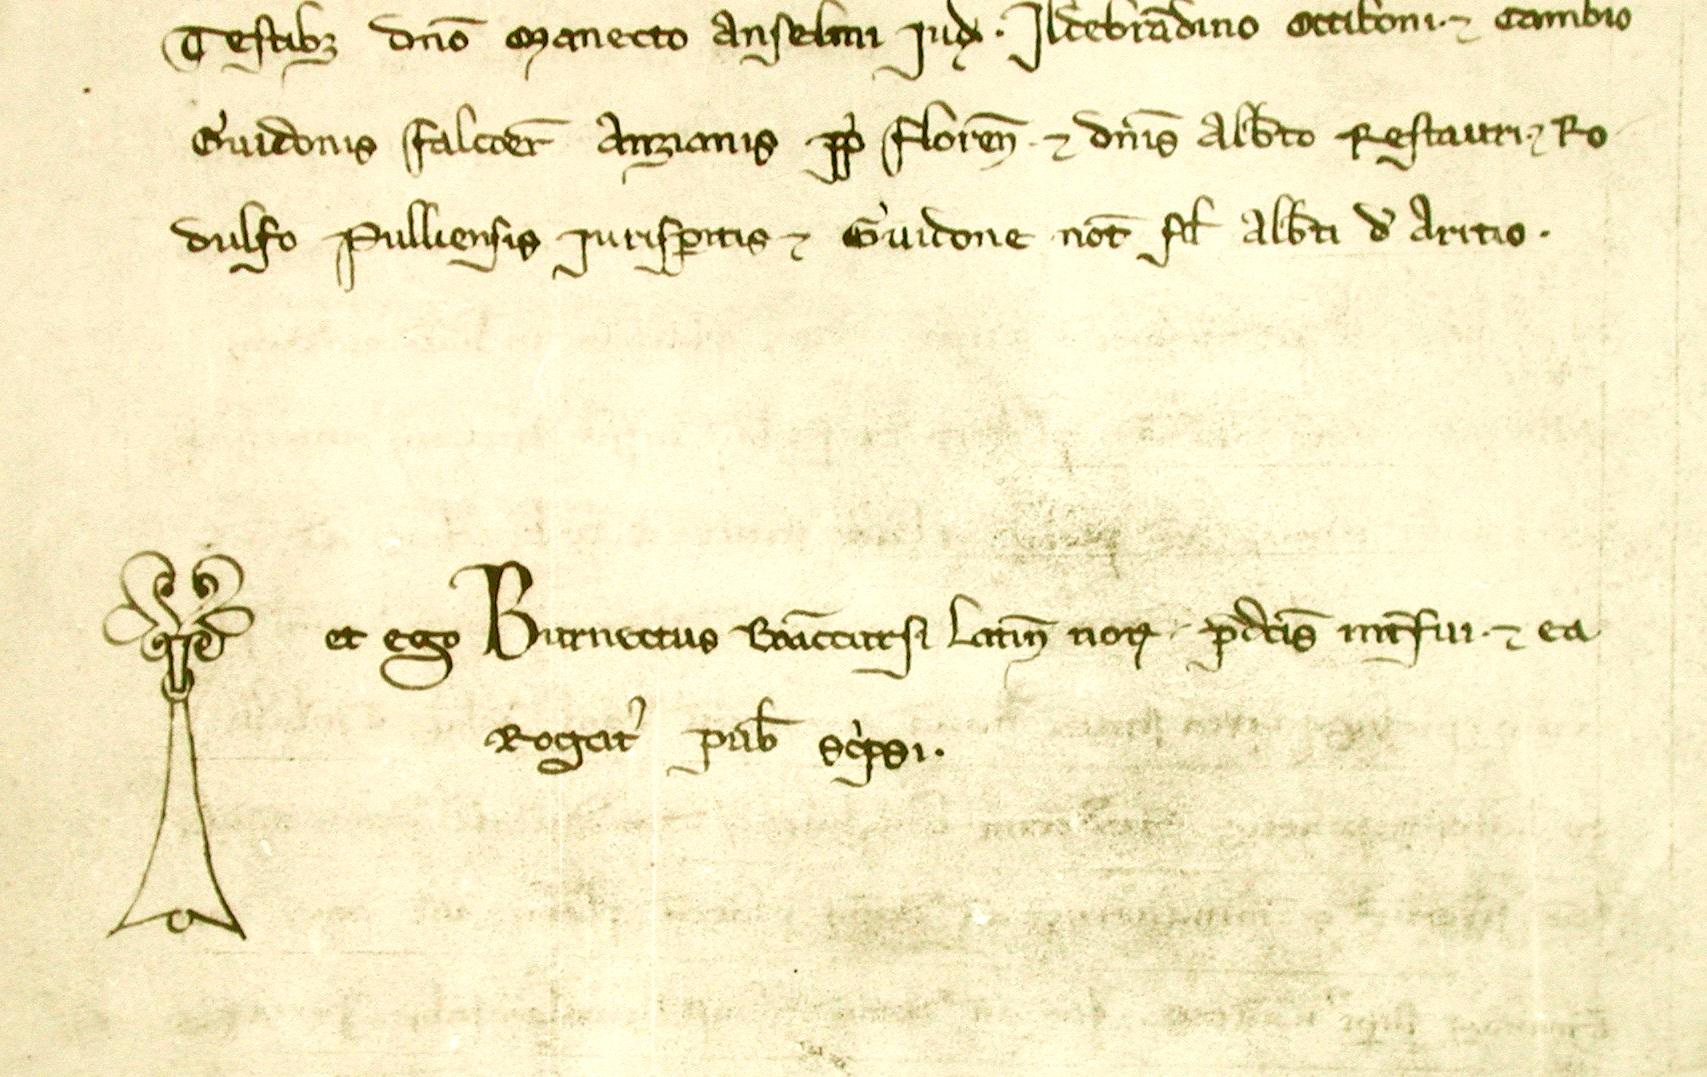 Testibꝫ dn̄o Manecto Anselmi Jud̄. Ildebrādino Ottiboni. ⁊ Cambio
Guidonis falcōer̄ Anzianis pp̄ Floren̄. ⁊ dn̄is Alb̄to Restauri. ⁊ Ro
dulfo Pulliensis Jurisꝑitis ⁊ Guidone not̄ fil̄ Alb̄ti d̄ Aritio.
et ego Burnectus Bōaccursi Latin̄ notꝫ p̄dc̄is int̄fui. ⁊ ea
Rogat᾽ pub̄ sc͛psi.